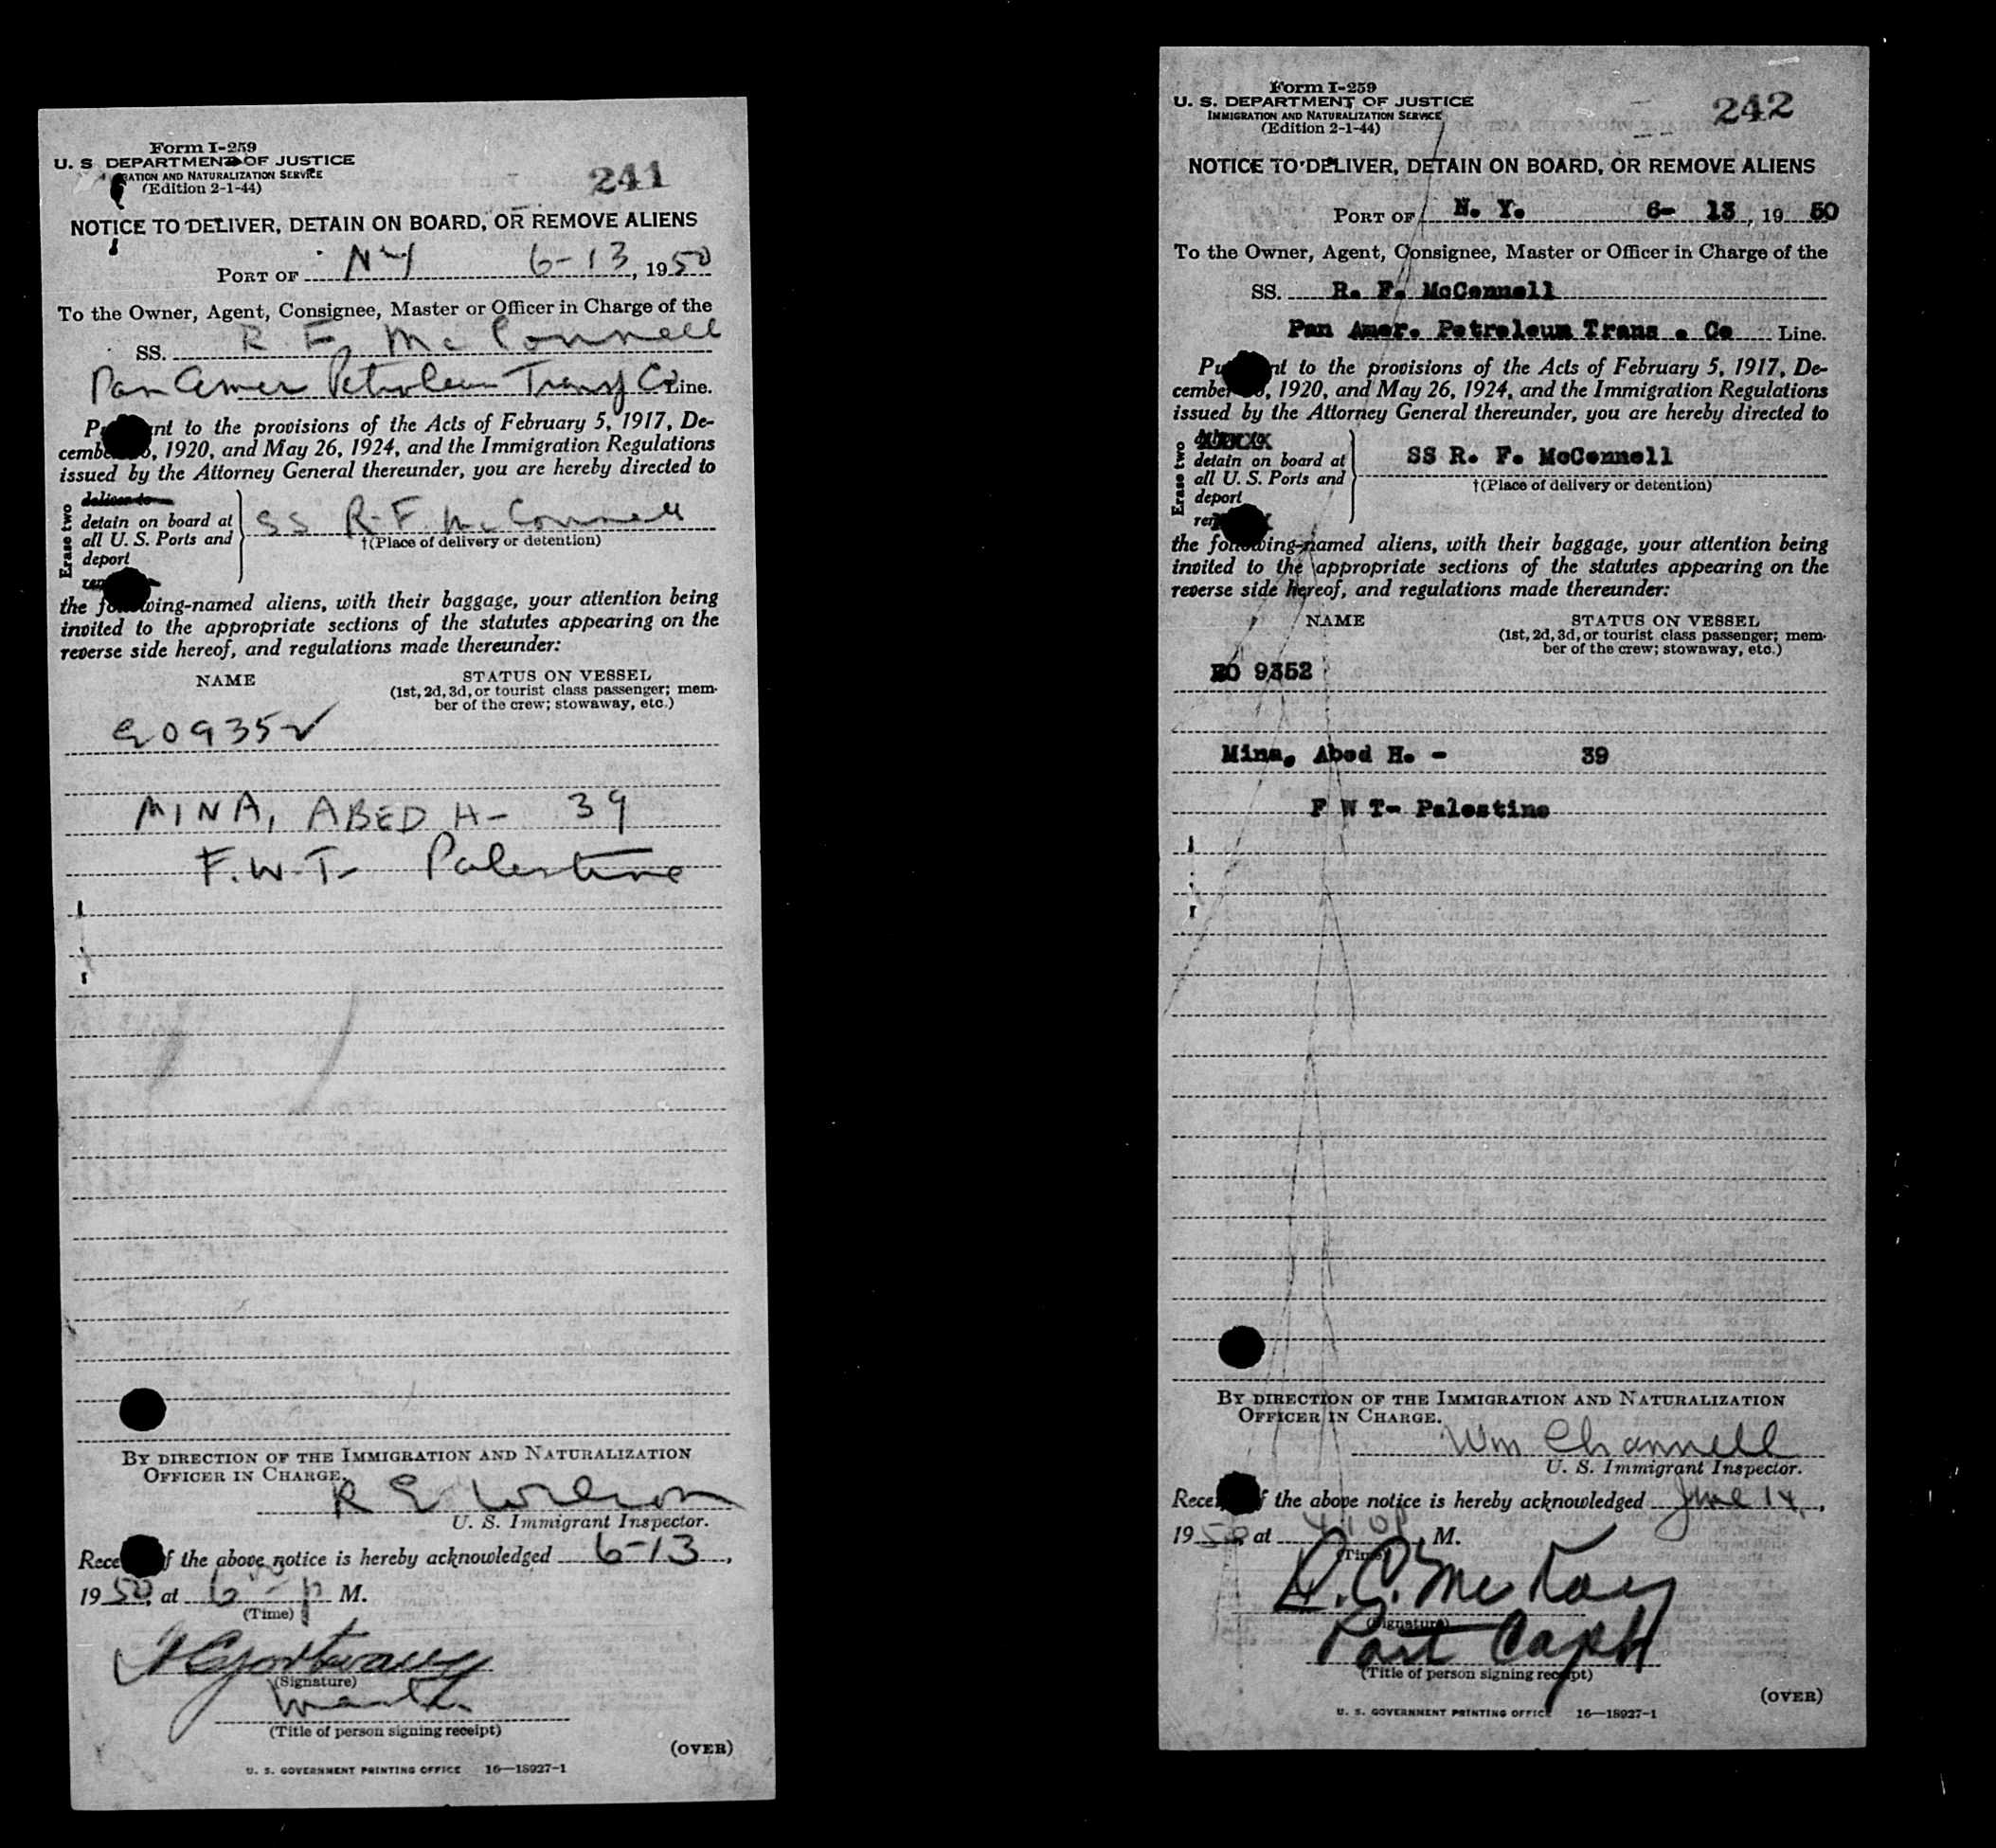 Form I-259
U. S. DEPARTMENT OF JUSTICE
ATION AND NATURALIZATION SERVICE
(Edition 2-1-44)
241
NOTICE TO DELIVER, DETAIN ON BOARD, OR REMOVE ALIENS
PORT OF NY 6-13, 1950
To the Owner, Agent, Consignee, Master or Officer in Charge of the
SS. R F McConnell
Pan Amer Petroleum Transp Co Line.
P nt to the provisions of the Acts of February 5, 1917, De-
cembe , 1920, and May 26, 1924, and the Immigration Regulations
issued by the Attorney General thereunder, you are hereby directed to
Erase two
deliver to
detain on board at
all U. S. Ports and
deport
SS R. F. McConnell
†(Place of delivery or detention)
the f wing-named aliens, with their baggage, your attention being
invited to the appropriate sections of the statutes appearing on the
reverse side hereof, and regulations made thereunder:
NAME STATUS ON VESSEL
(1st, 2d, 3d, or tourist class passenger; mem-
ber of the crew; stowaway, etc.)
EO 9352
MINA, ABED H- 39
F.W.T- Palestine
BY DIRECTION OF THE IMMIGRATION AND NATURALIZATION
OFFICER IN CHARGE.
R E Wilson
U. S. Immigrant Inspector.
Rece f the above notice is hereby acknowledged 6-13,
1950, at 6 p M.
(Time)
(Signature)
(Title of person signing receipt)
(OVER)
U. S. GOVERNMENT PRINTING OFFICE 16—18927-1
Form I-259
U. S. DEPARTMENT OF JUSTICE
IMMIGRATION AND NATURALIZATION SERVICE
(Edition 2-1-44)
242
NOTICE TO DELIVER, DETAIN ON BOARD, OR REMOVE ALIENS
PORT OF N. Y. 6- 13, 1950
To the Owner, Agent, Consignee, Master or Officer in Charge of the
SS. R. F. McConnell
Pan Amer. Petroleum Trans . Co Line.
Pu nt to the provisions of the Acts of February 5, 1917, De-
cember , 1920, and May 26, 1924, and the Immigration Regulations
issued by the Attorney General thereunder, you are hereby directed to
Erase two
detain on board at
all U. S. Ports and
deport
SS R. F. McConnell
†(Place of delivery or detention)
the fo wing-named aliens, with their baggage, your attention being
invited to the appropriate sections of the statutes appearing on the
reverse side hereof, and regulations made thereunder:
NAME STATUS ON VESSEL
(1st, 2d, 3d, or tourist class passenger; mem-
ber of the crew; stowaway, etc.)
EO 9352
Mina, Abed H. - 39
F W T- Palestine
BY DIRECTION OF THE IMMIGRATION AND NATURALIZATION
OFFICER IN CHARGE.
Wm Channell
U. S. Immigrant Inspector.
Rece f the above notice is hereby acknowledged June 14,
1950, at M.
(Time)
McKay
(Signature)
Port Capt
(Title of person signing receipt)
(OVER)
U. S. GOVERNMENT PRINTING OFFICE 16—18927-1